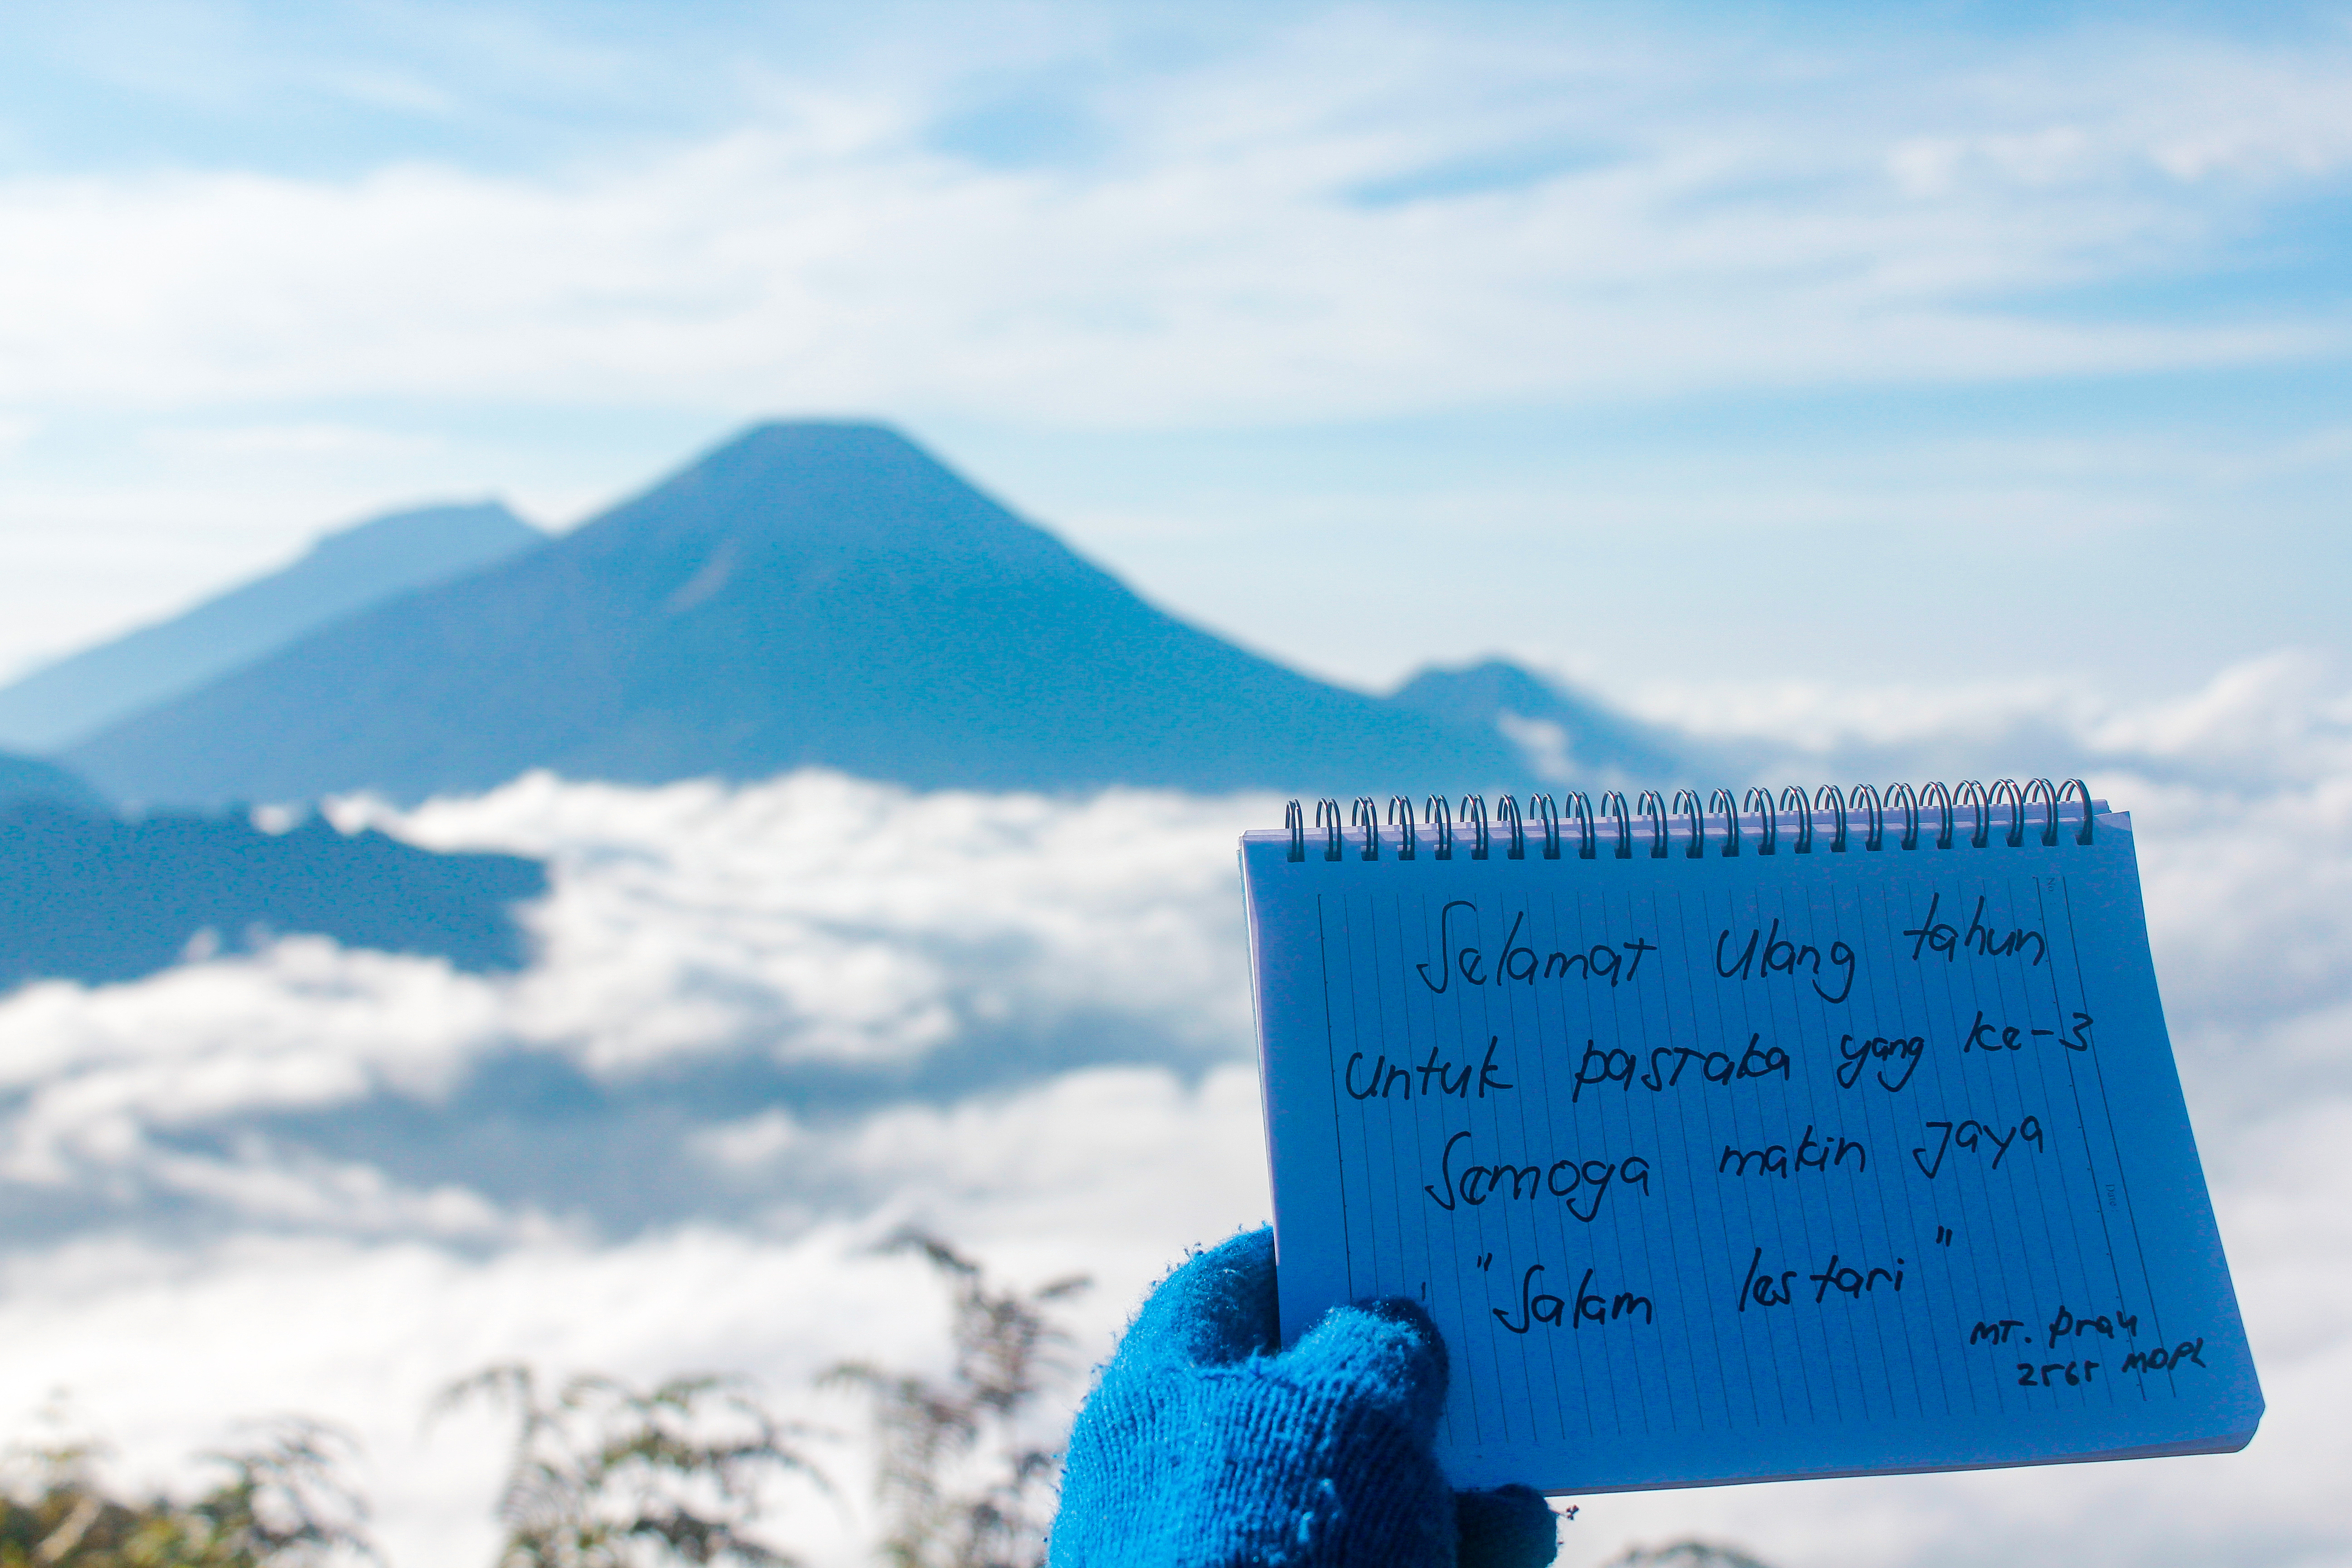 Selamat Ulang tahun
Untuk pastaka yang ke-3
Semoga makin Jaya
"Salam lestari"
MT. Prau
2565 MDPL